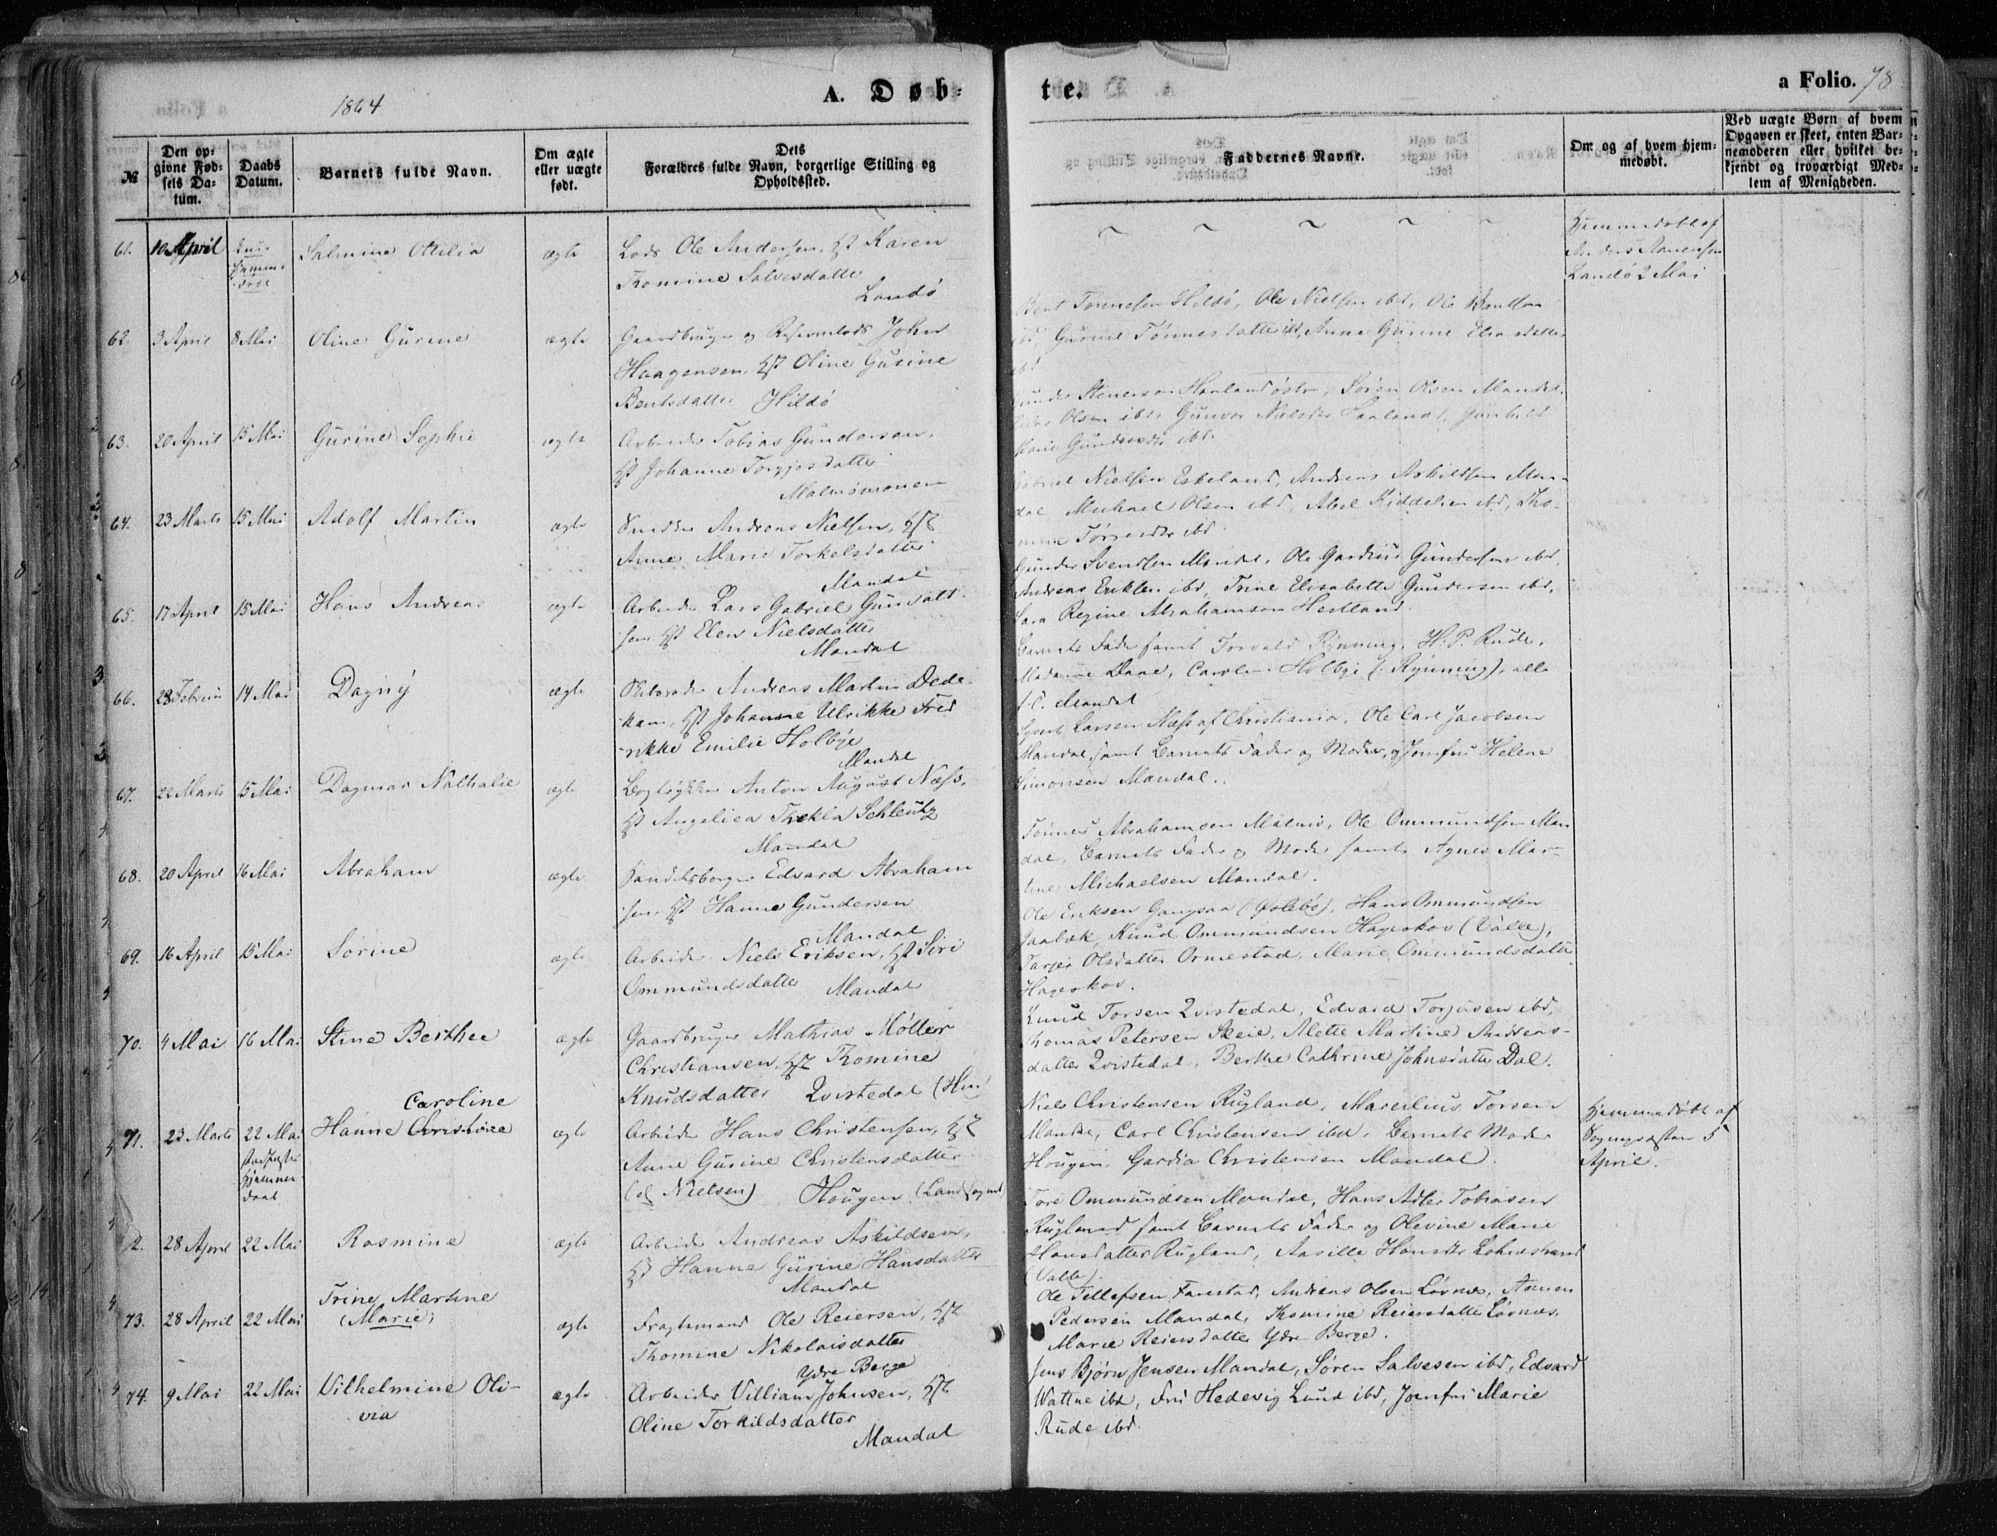 1864
A. Døb-
te.
a Folio. 78
№
Den op-
givne Fød-
sels Da-
tum.
Daabs
Datum.
Barnets fulde Navn.
Om ægte
eller uægte
født.
Dets
Forældres fulde Navn, borgerlige Stilling og
Opholdssted.
Faddernes Navne.
Om og af hvem hjem-
medøbt.
Ved uægte Børn af hvem
Opgaven er skeet, enten Bar-
nemoderen eller hvilket be-
kjendt og troværdigt Med-
lem af Menigheden.
61. 10 April
Salmine Otilia
ægte
Lods Ole Andersen, Hst Karen
Thomine Salvesdatter
Landø
Hjemmedøbt af
Anders Aanensen
Landø 2 Mai
62. 3 April 8 Mai
Oline Gurine
ægte
Gaardbruger og Reservelods John
Haagensen, Hst Oline Gurine
Bentsdatter Hildø
Bent Tønnesen Hildø, Ole Nielsen ibd, Ole Bentsen
ibd, Gurine Tønnesdatter ibd, Anne Gurine Eliasdatter
ibd
63. 20 April 15 Mai
Gurine Sophie
ægte
Arbeider Tobias Gundersen,
Hst Johanne Torgjesdatter
Malmømonen
Olsen Mandal
Olsen ibd, Gunvor Nielsdtr Haaland, Gunhild
Marie ibd.
64. 23 Marts 15 Mai
Adolf Martin
ægte
Snedker Andreas Nielsen, Hst
Anne Marie Torkelsdatter
Mandal
Gabriel Nielsen Eskeland, Andreas Askildsen Man-
dal, Michael Olsen ibd, Abel Kiddelsen ibd, Tho-
mine ibd
65. 17 April 15 Mai
Hans Andreas
ægte
Arbeider Lars Gabriel Gunvalt-
sen Hst Elen Nielsdatter
Mandal
Gunder Svendsen Mandal, Ole Gardius Gundersen ibd,
Andreas Eriksen ibd, Trine Elisabeth Gundersen ibd,
Sara Regine Abrahamsen Hestland.
66. 28 Februar 14 Mai
Dagny
ægte
Skibsreder Andreas Martin Dede-
kam, Hst Johanne Ulrikke Fred-
rikke Emilie Holbye
Mandal
Barnets Fader samt Torvald Rynning, H. P. Rude,
Madame Daae, Caroline Holbye (f. Rynning), alle
Mandal
67. 22 Marts 15 Mai
Dagmar Nathalie
ægte
Bogtrykker Anton August Næss,
Hst Angelica Thekla Schleutz
Mandal
Larsen Næss af Christiania, Ole Carl Jacobsen
Mandal, samt Barnets Fader og Moder, og Jomfru Helene
Simonsen Mandal.
68. 20 April 16 Mai
Abraham
ægte
Handelsborger Edvard Abraham-
sen, Hst Hanne Gundersen
Mandal
Tønnes Abrahamsen Malmø, Ole Ommundsen Man-
dal, Barnets Fader og Moder samt Agnes Mar-
tine Michaelsen Mandal.
69. 16 April 15 Mai
Sorine
ægte
Arbeider Niels Eriksen, Hst Siri
Ommundsdatter Mandal
Ole Eriksen Gangsaa (Øslebø), Hans Ommundsen
Jaabæk, Knud Ommundsen Hageskov (Valle),
Tarjer Olsdatter Ormestad, Marie Ommundsdatter
Hageskov.
70. 4 Mai 16 Mai
Stine Berthee
ægte
Gaardbruger Mathias Møller
Christiansen, Hst Thomine
Knudsdatter Qvistedal
Knud Torsen Qvistedal, Edvard Torjusen ibd,
Thomas Petersen Skeie, Mette Martine Andreas-
datter Qvistedal, Berthe Cathrine Johnsdatter Dal.
71. 23 Marts 22 Mai
stadfæstet
Hjemme-
daab
Caroline
Hanne Christine
ægte
Arbeider Hans Christensen, Hst
Anne Gurine Christensdatter
(el Nielsen) Hougen (Landsognet)
Niels Christensen Rugland, Marselius Torsen
Mandal, Carl Christensen ibd, Barnets Moder
Hougen, Gardia Christensen Mandal.
Hjemmedøbt af
Sognepræsten 5
April.
72. 28 April 22 Mai
Rosmine
ægte
Arbeider Andreas Askildsen,
Hst Hanne Gurine Hansdatter
Mandal
Tore Ommundsen Mandal, Hans Adler Tobiasen
Rugland samt Barnets Fader og Olevine Marie
Hansdatter Rugland, Aasille Hansdtr Lohnestrand
(Valle).
73. 28 April 22 Mai
Trine Martine
(Marie)
ægte
Fragtemand Ole Reiersen, Hst
Thomine Nikolaisdatter
Ydre Berge
Ole Tellefsen Farestad, Andreas Olsen Løvnæs, Aanen
Pedersen Mandal, Thomine Reiersdatter Løvnæs,
Marie Reiersdatter Ydre Berge.
74. 9 Mai 22 Mai
Vilhelmine Oli-
via
ægte
Arbeider Villiam Johnsen, Hst
Oline Torkildsdatter
Mandal
Jens Bjørn Jensen Mandal, Søren Salvesen ibd, Edvard
Wattne ibd, Fru Hedevig Lund ibd, Jomfru Marie
Rude ibd.